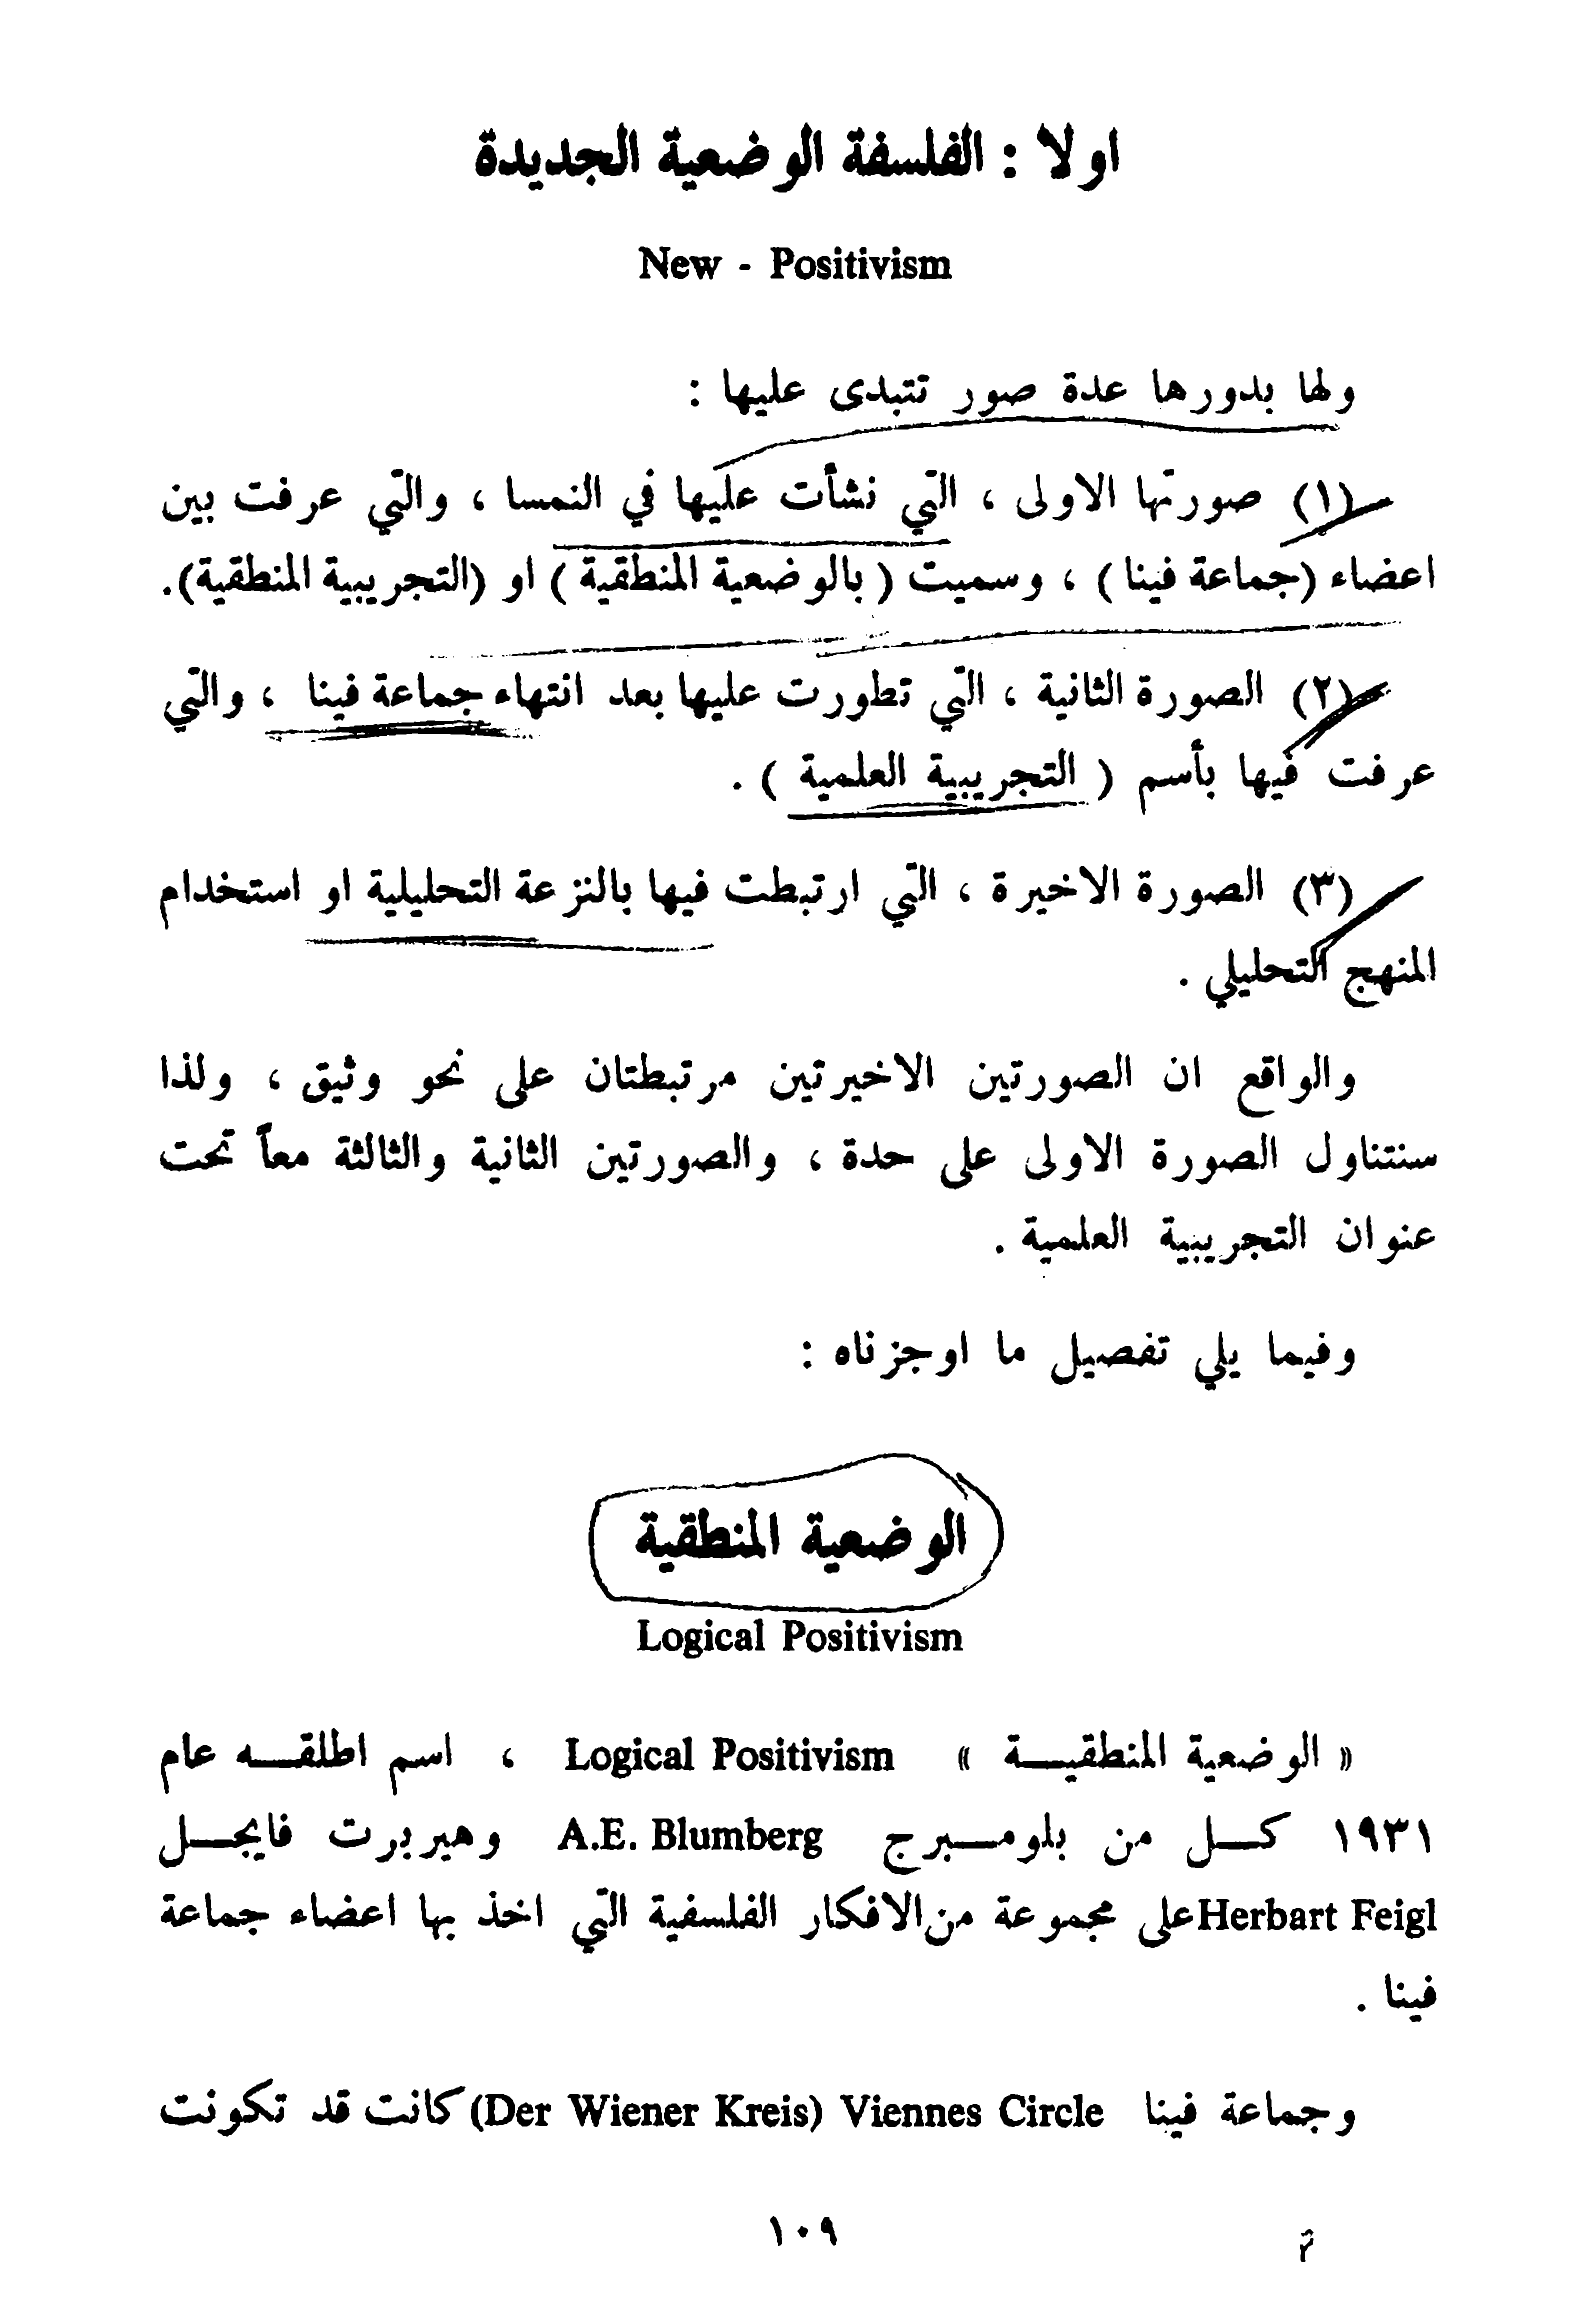 اولا : الفلسفة الوضعية الجديدة
New - Positivism
ولها بدورها عدة صور تتبدى عليها :
(١) صورتها الاولى ، التي نشأت عليها في النمسا ، والتي عرفت بين
اعضاء (جماعة فينا) ، وسميت (بالوضعية المنطقية) او (التجريبية المنطقية).
(٢) الصورة الثانية ، التي تطورت عليها بعد انتهاء جماعة فينا ، والتي
عرفت فيها بأسم ( التجريبية العلمية ) .
(٣) الصورة الاخيرة ، التي ارتبطت فيها بالنزعة التحليلية او استخدام
المنهج التحليلي .
والواقع ان الصورتين الاخيرتين مرتبطتان على نحو وثيق ، ولذا
سنتناول الصورة الاولى على حدة ، والصورتين الثانية والثالثة معاً تحت
عنوان التجريبية العلمية .
وفيما يلي تفصيل ما اوجزناه :
الوضعية المنطقية
Logical Positivism
« الوضعية المنطقيـــة » Logical Positivism ، اسم اطلقـــه عام
١٩٣١ كـــل من بلومـــبرج A.E. Blumberg وهيربرت فايجـــل
Herbart Feigl على مجموعة من الافكار الفلسفية التي اخذ بها اعضاء جماعة
فينا .
وجماعة فينا Viennes Circle (Der Wiener Kreis) كانت قد تكونت
١٠٩